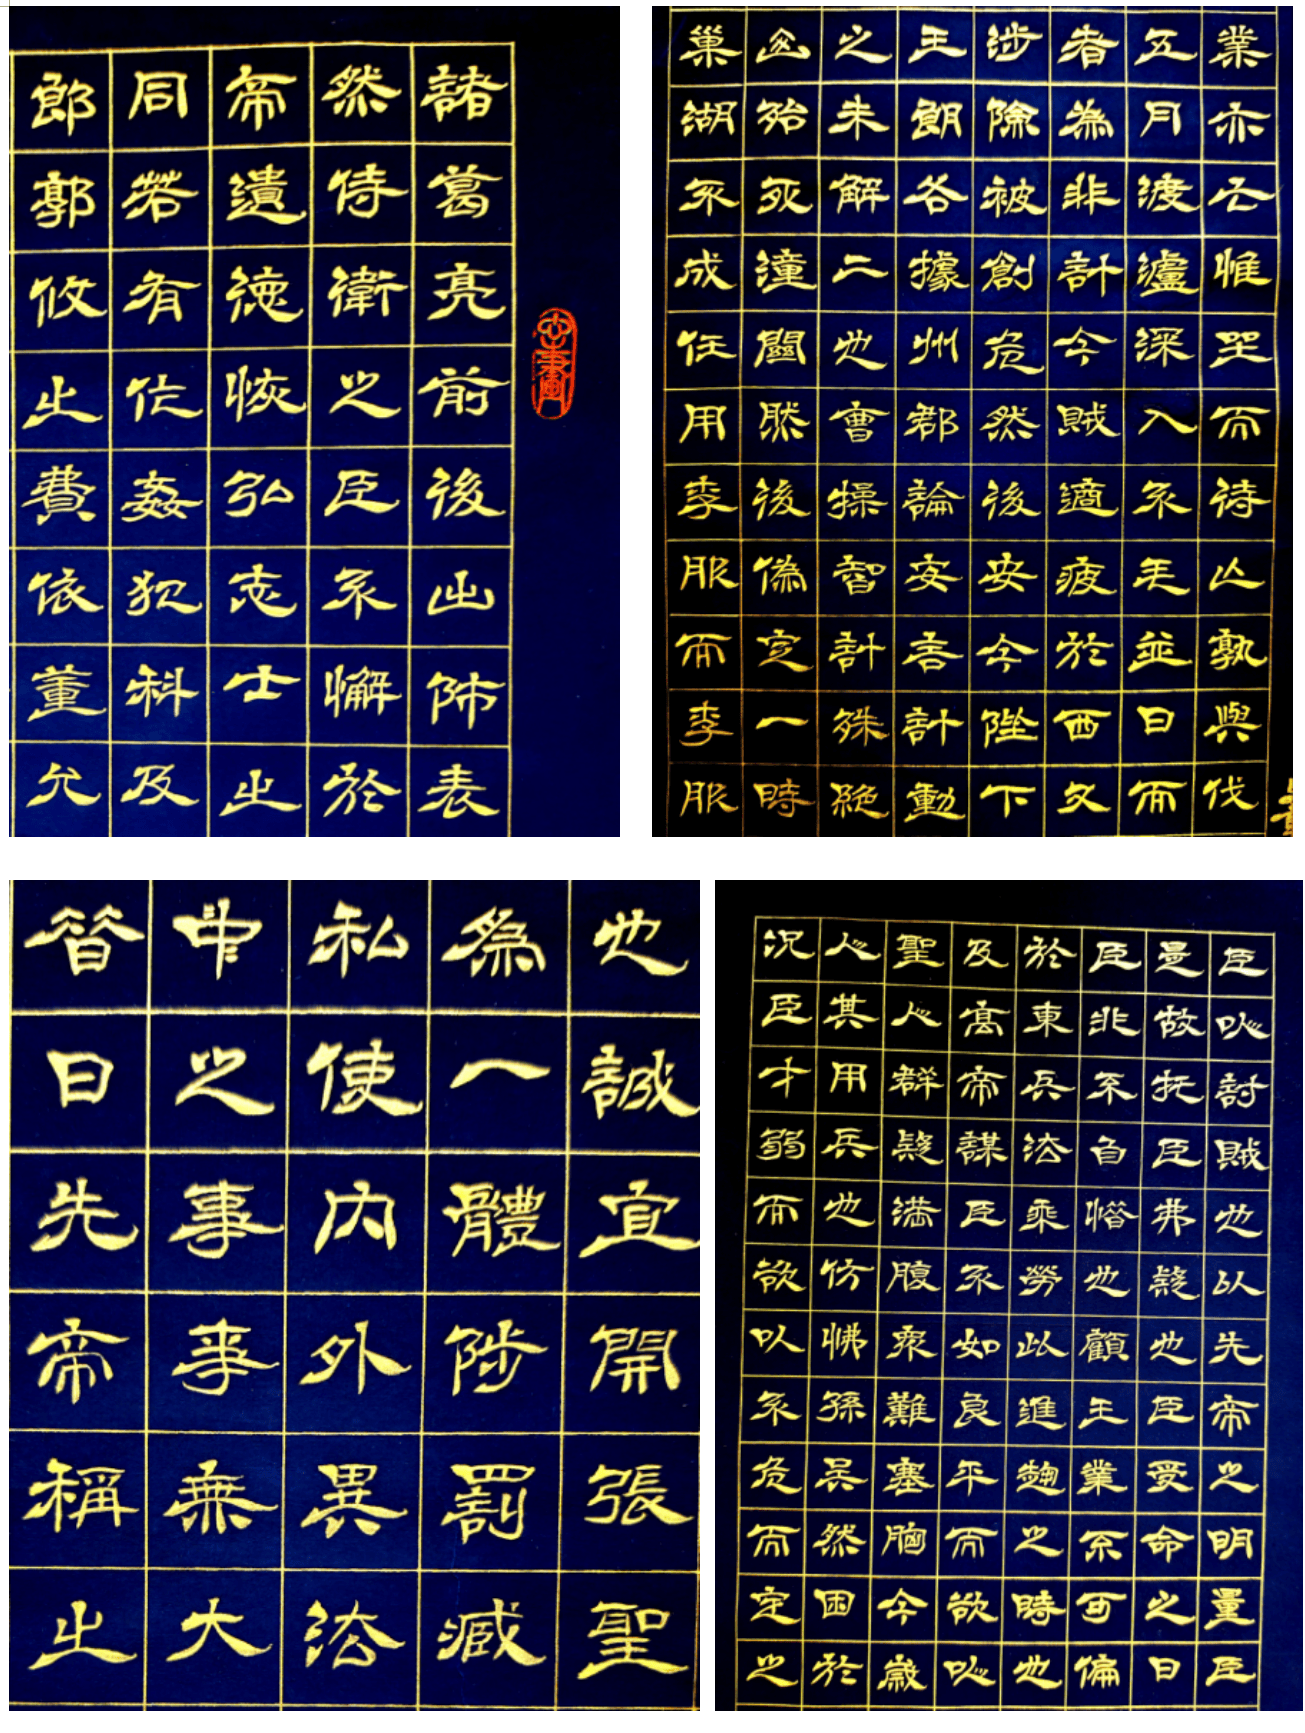 諸葛亮前後出師表
然侍衛之臣不懈於
帝遺德恢弘志士之
同若有作姦犯科及
郎郭攸之費依董允
業亦亡惟坐而待亡孰與伐
五月渡瀘深入不毛並日而
者為非計今賊適疲於西又
涉險被創危然後安今陛下
王朗各據州郡論安言計動
之未解二也曹操智計殊絕
山殆死潼關然後偽定一時
巢湖不成任用李服而李服
也誠宜開張聖
為一體陟罰臧
私使內外異法
中之事事無大
昔日先帝稱之
臣以討賊也以先帝之明量臣
是故托臣弗疑也臣受命之日
臣非不自惜也顧王業不可偏
於東兵法乘勞此進趨之時也
及高帝謀臣不如良平而欲以
聖人群疑滿腹眾難塞胸今歲
人其用兵也仿怫孫吳然困於
況臣才弱而欲以不危而定之